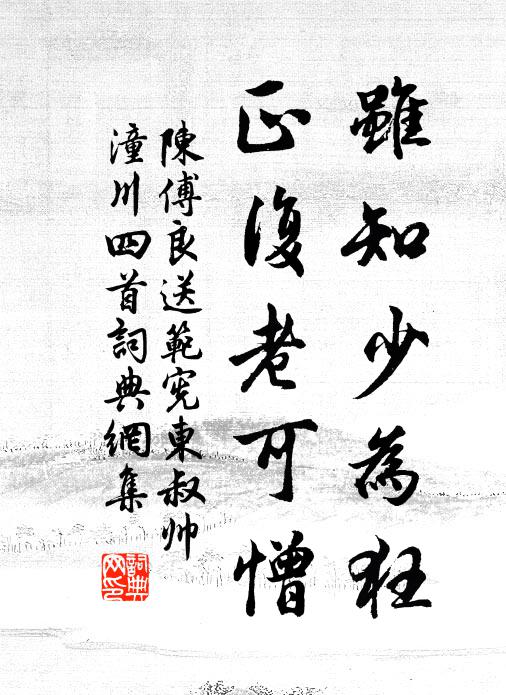 雖知少為狂
正復老可憎
陳傅良送範憲東叔帅
潼川四首詞典網集
詞典
网印